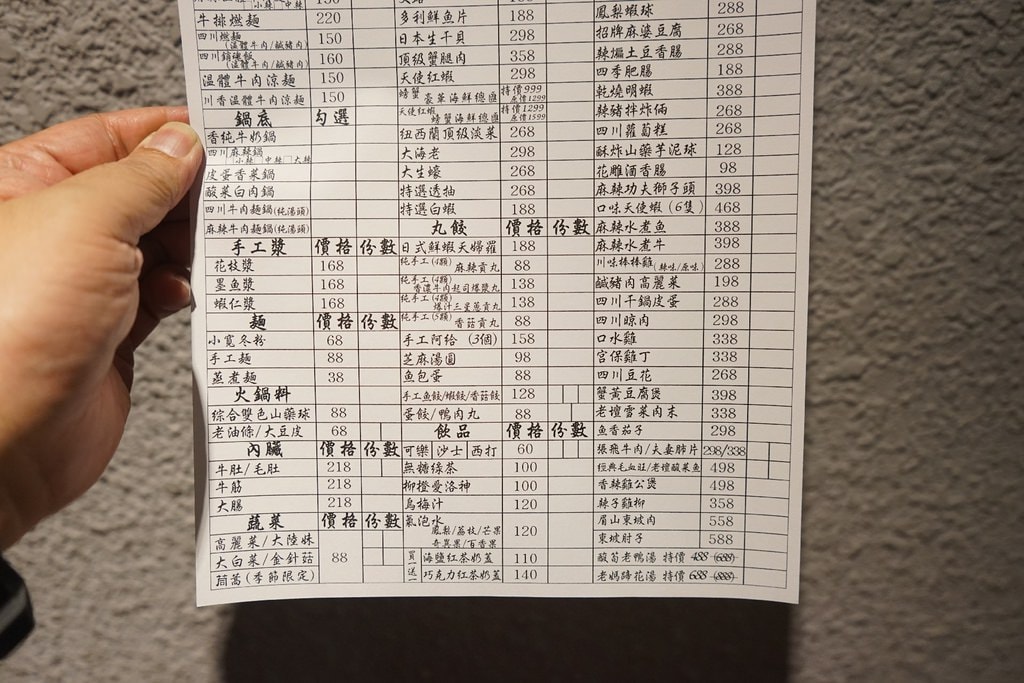 牛排燃麵 220
四川燃麵(溫體牛肉/鹹豬肉) 150
四川銷魂飯(溫體牛肉/鹹豬肉) 160
溫體牛肉涼麵 150
川香溫體牛肉涼麵 150
鍋底 勾選
香純牛奶鍋
四川麻辣鍋 小辣 中辣 大辣
皮蛋香菜鍋
酸菜白肉鍋
四川牛肉麵鍋(純湯頭)
麻辣牛肉麵鍋(純湯頭)
手工漿 價格 份數
花枝漿 168
墨魚漿 168
蝦仁漿 168
麵 價格 份數
小寬冬粉 68
手工麵 88
蒸煮麵 38
火鍋料
綜合雙色山藥球 88
老油條/大豆皮 68
內臟 價格 份數
牛肚/毛肚 218
牛筋 218
大腸 218
蔬菜 價格 份數
高麗菜/大陸妹
大白菜/金針菇 88
茼蒿(季節限定)
多利鮮魚片 188
日本生干貝 298
頂級蟹腿肉 358
天使紅蝦 298
螃蟹豪華海鮮總匯 特價999 原價1299
天使紅蝦螃蟹海鮮總匯 特價1299 原價1599
紐西蘭頂級淡菜 268
大海老 298
大生蠔 268
特選透抽 268
特選白蝦 188
丸餃 價格 份數
日式鮮蝦天婦羅 188
純手工(4顆)麻辣貢丸 88
純手工(4顆)香濃牛肉起司爆漿丸 138
純手工(4顆)爆汁三星蔥貢丸 138
純手工(5顆)香菇貢丸 88
手工阿給(3個) 158
芝麻湯圓 98
魚包蛋 88
手工魚餃/蝦餃/香菇餃 128
蛋餃/鴨肉丸 88
飲品 價格 份數
可樂 沙士 西打 60
無糖綠茶 100
柳橙愛洛神 100
烏梅汁 120
氣泡水
鳳梨/荔枝/芒果
奇異果/百香果 120
買一送一
海鹽紅茶奶蓋 110
巧克力紅茶奶蓋 140
鳳梨蝦球 288
招牌麻婆豆腐 268
辣煸土豆香腸 288
四季肥腸 188
乾燒明蝦 388
辣豬拌炸倆 268
四川蘿蔔糕 268
酥炸山藥芋泥球 128
花雕酒香腸 98
麻辣功夫獅子頭 398
口味天使蝦(6隻) 468
麻辣水煮魚 388
麻辣水煮牛 398
川味棒棒雞(辣味/原味) 288
鹹豬肉高麗菜 198
四川干鍋皮蛋 288
四川晾肉 298
口水雞 338
宮保雞丁 338
四川豆花 268
蟹黃豆腐煲 398
老壇雪菜肉末 338
魚香茄子 298
張飛牛肉/夫妻肺片 298/338
經典毛血旺/老壇酸菜魚 498
香辣雞公煲 498
辣子雞柳 358
眉山東坡肉 558
東坡肘子 588
酸筍老鴨湯 特價 488 (688)
老媽蹄花湯 特價 688 (888)